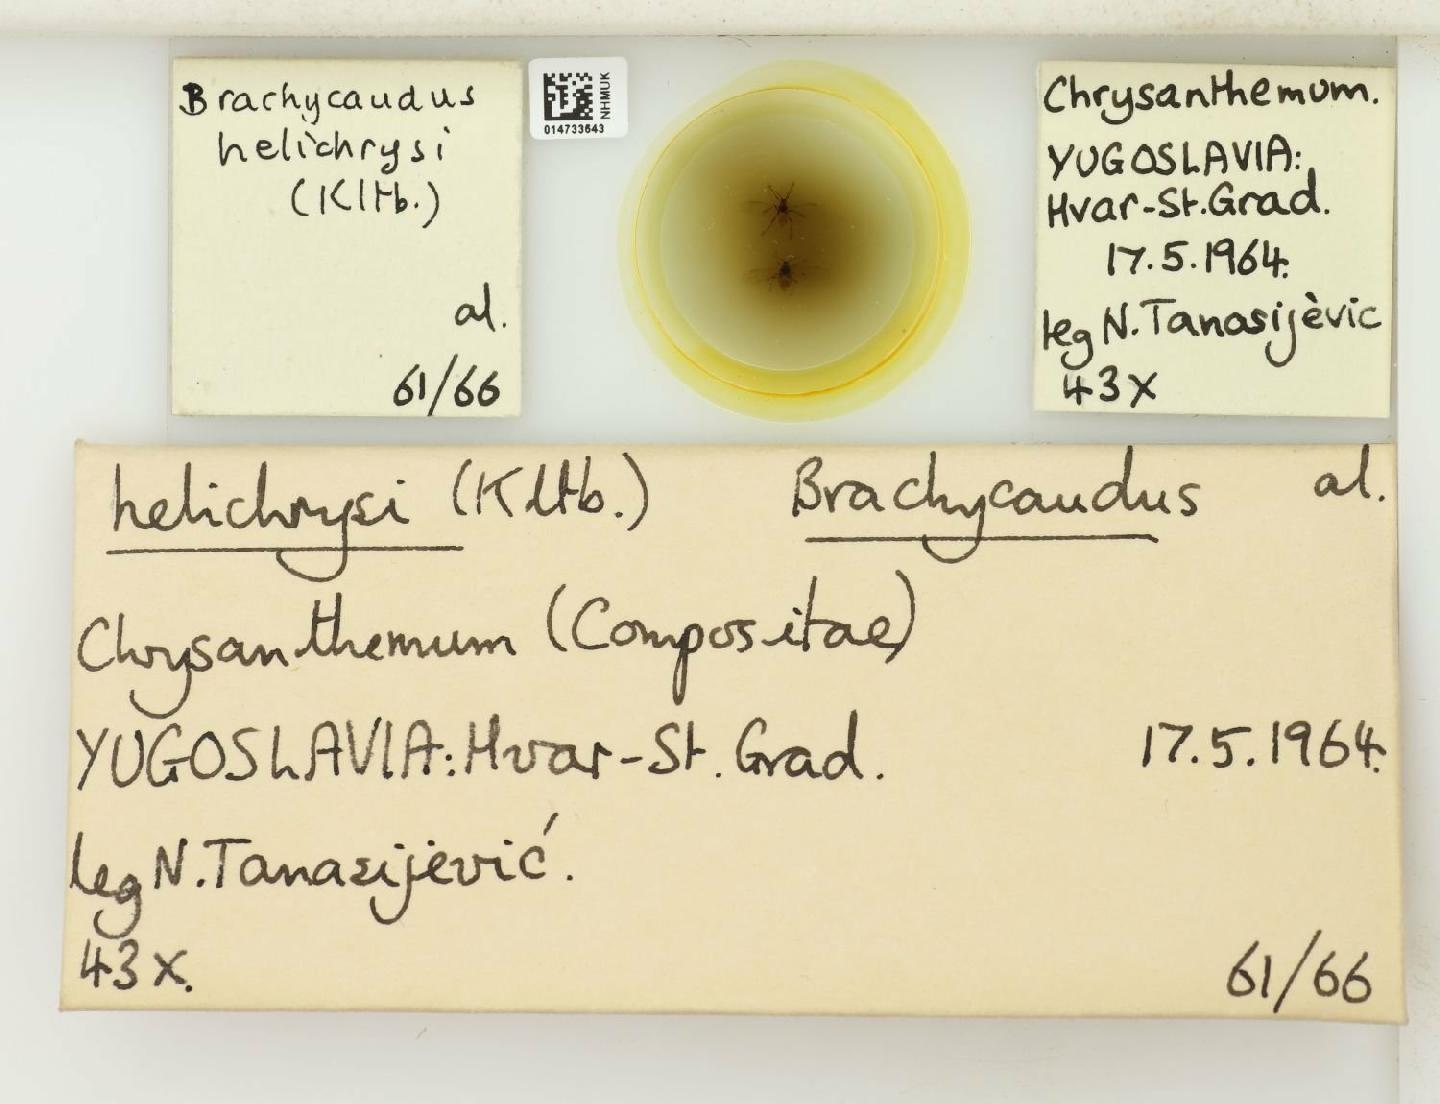 Brachycaudus
helichrysi
(Kltb.)
al.
61/66
NHMUK
014733643
Chrysanthemum.
YUGOSLAVIA:
Hvar-St.Grad.
17.5.1964.
leg N.Tanasijèvic
43X
helichrysi (Kltb.) Brachycaudus al.
Chrysanthemum (Compositae)
YUGOSLAVIA: Hvar-St. Grad. 17.5.1964.
leg N.Tanasijević.
43X. 61/66